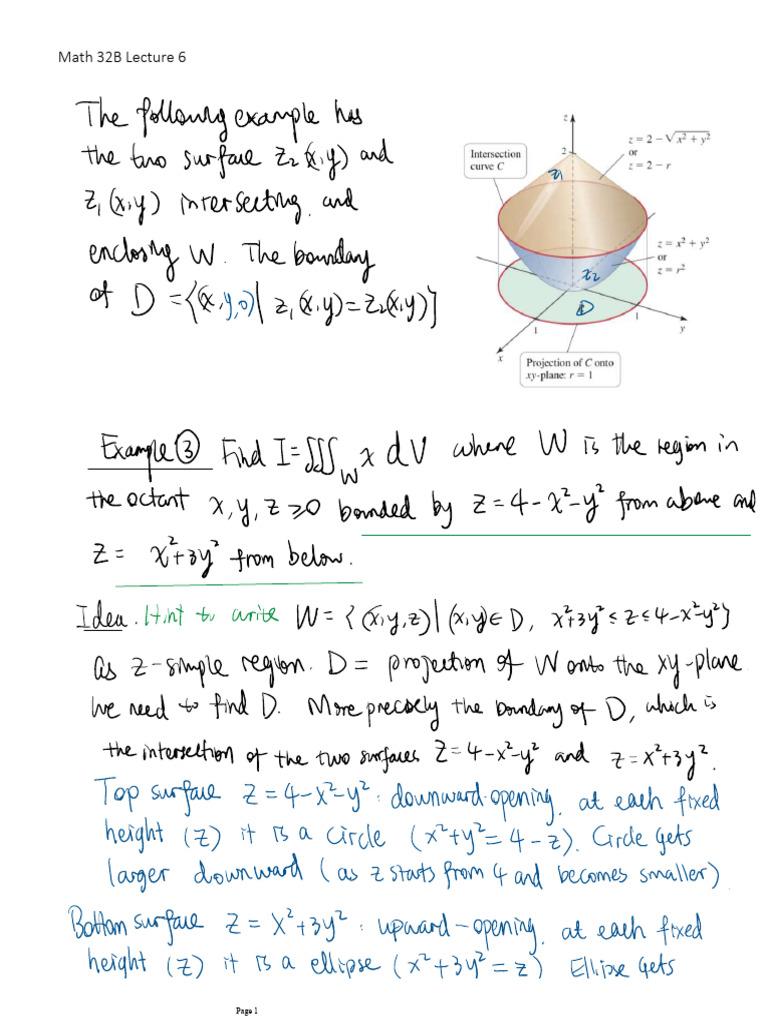 Math 32B Lecture 6
The following example has
the two surface z₂(x,y) and
z₁(x,y) intersecting and
enclosing W. The boundary
of D = {(x,y,0) | z₁(x,y)=z₂(x,y)}
z
2
Intersection
curve C
z = 2 − √x² + y²
or
z = 2 − r
z₁
1
z = x² + y²
or
z = r²
z₂
D
1
1
x
y
Projection of C onto
xy-plane: r = 1
Example ③ Find I = ∭_W x dV where W is the region in
the octant x, y, z ≥ 0 bounded by z = 4 - x² - y² from above and
z = x² + 3y² from below.
Idea. Hint to write W = {(x,y,z) | (x,y) ∈ D, x²+3y² ≤ z ≤ 4-x²-y²}
as z-simple region. D = projection of W onto the xy-plane
We need to find D. More precisely the boundary of D, which is
the intersection of the two surfaces z = 4-x²-y² and z = x²+3y².
Top surface z = 4-x²-y² : downward-opening, at each fixed
height (z) it is a circle (x²+y² = 4-z). Circle gets
larger downward (as z starts from 4 and becomes smaller)
Bottom surface z = x²+3y² : upward-opening, at each fixed
height (z) it is a ellipse (x²+3y² = z) Ellipse gets
Page 1